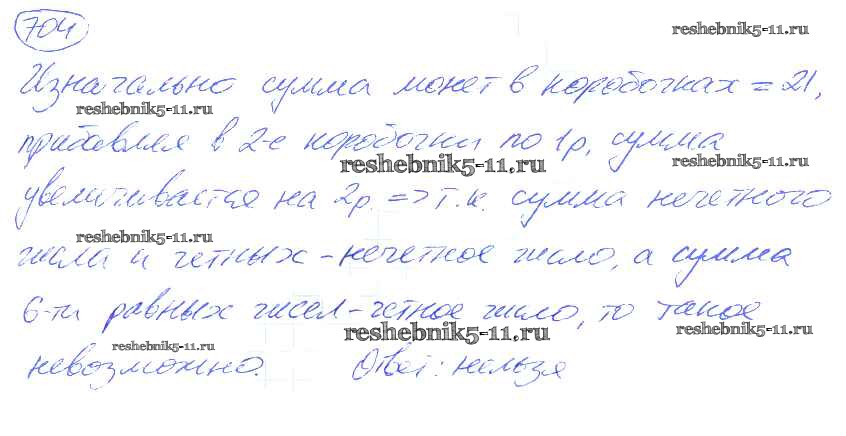 704
reshebnik5-11.ru
Изначально сумма монет в коробочках = 21,
reshebnik5-11.ru
прибавляя в 2-е коробочки по 1р, сумма
reshebnik5-11.ru
reshebnik5-11.ru
увеличивается на 2р. => т.к. сумма нечетного
reshebnik5-11.ru
числа и четных - нечетное число, а сумма
6-ти равных чисел - четное число, то такое
reshebnik5-11.ru
reshebnik5-11.ru
reshebnik5-11.ru
невозможно. Ответ: нельзя